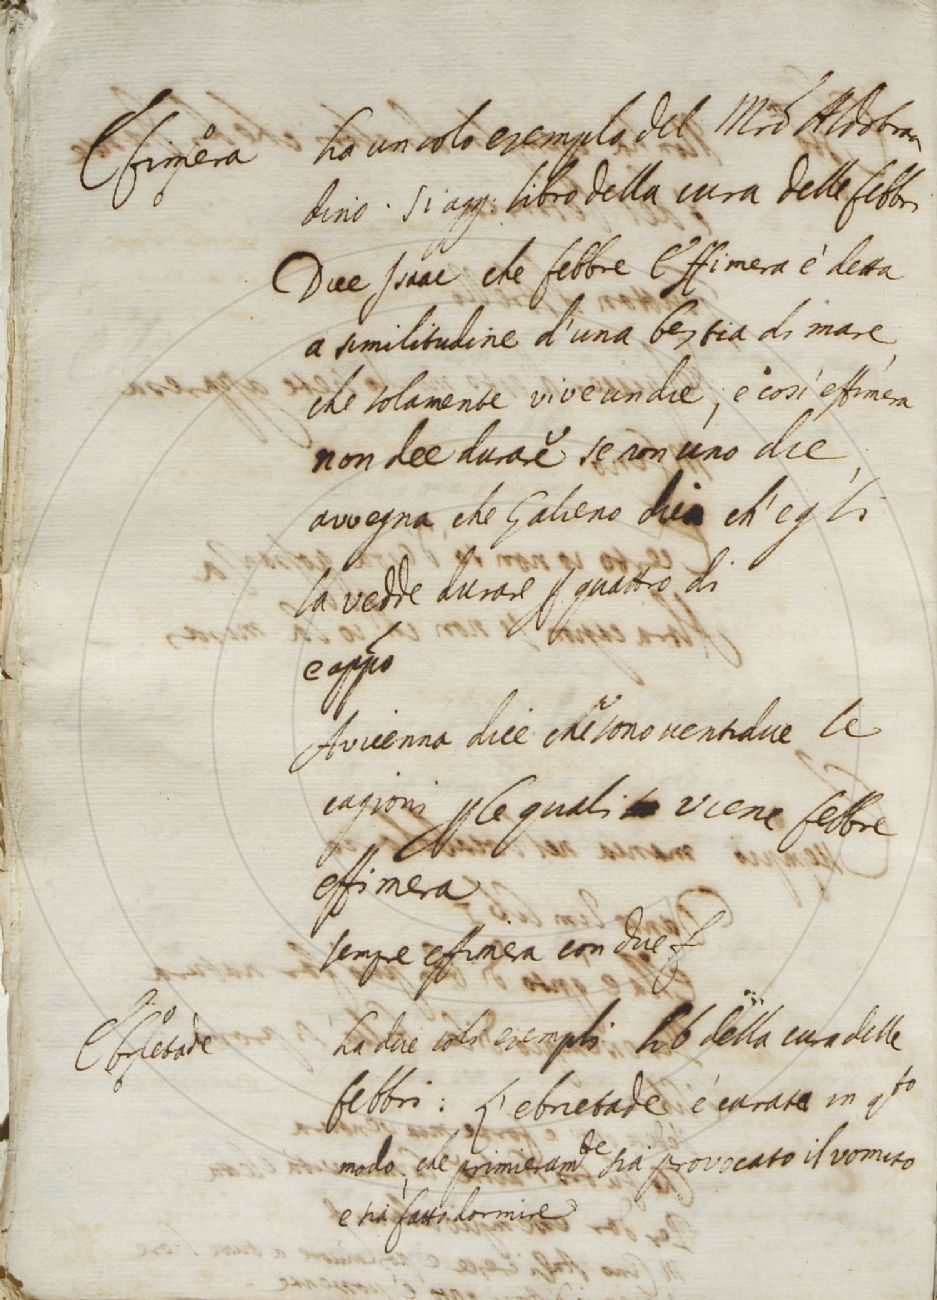 Effimera ha un solo esempio del Mrõ Aldobran
dino. Si agg: libro della cura delle febbri
Dice Isaac che febbre Effimera è detta
a similitudine d'una bestia di mare,
che solamente vive un die, e così effimera
non dee durare se non uno die,
avvegna che Galieno dica ch'egli
la vedde durare p quattro dì
e appõ
Avicenna dice che sono ventidue le
cagioni p le quali viene febbre
effimera
sempre effimera con due f
Ebrietade ha due soli esempli. lib della cura delle
febbri: L'ebrietade è curata in qto
modo, che primieramte sia provocato il vomito
e sia fatto dormire